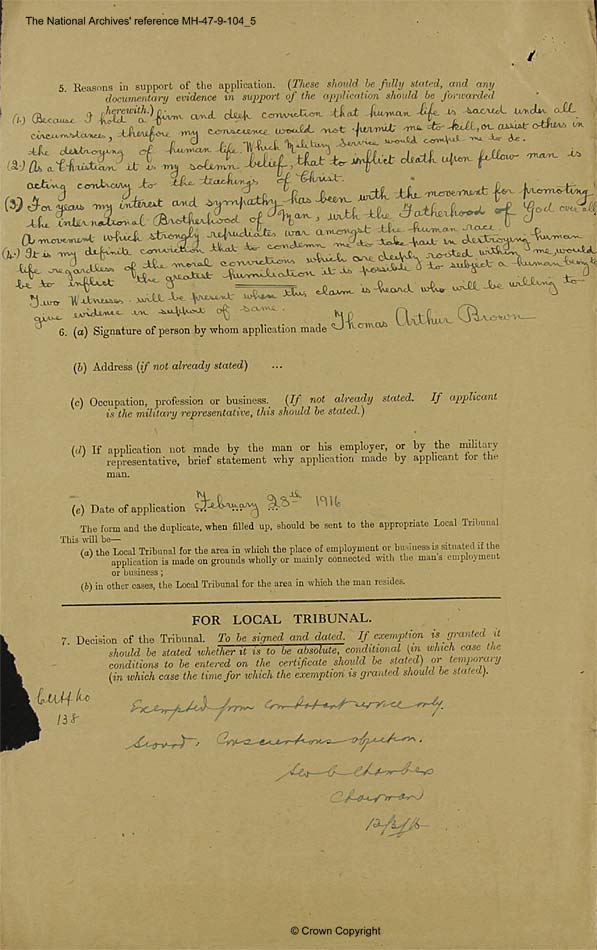 The National Archives' reference MH-47-9-104_5
5. Reasons in support of the application. (These should be fully stated, and any
documentary evidence in support of the application should be forwarded
herewith.)
(1.) Because I hold a firm and deep conviction that human life is sacred under all
circumstances, therefore my conscience would not permit me to kill, or assist others in
the destroying of human life. Which Military Service would compel me to do.
(2.) As a Christian it is my solemn belief, that to inflict death upon fellow man is
acting contrary to the teachings of Christ.
(3.) For years my interest and sympathy has been with the movement for promoting
the international Brotherhood of Man, with the Fatherhood of God over all
A movement which strongly repudiates war amongst the human race.
(4.) It is my definite conviction that to condemn me to take part in destroying human
life regardless of the moral convictions which are deeply rooted within me would
be to inflict the greatest humiliation it is possible to subject a human being to
Two Witnesses will be present when this claim is heard who will be willing to
give evidence in support of same.
6. (a) Signature of person by whom application made Thomas Arthur Brown
(b) Address (if not already stated) ...
(c) Occupation, profession or business. (If not already stated. If applicant
is the military representative, this should be stated.)
(d) If application not made by the man or his employer, or by the military
representative, brief statement why application made by applicant for the
man.
(e) Date of application February 28th 1916
The form and the duplicate, when filled up, should be sent to the appropriate Local Tribunal
This will be—
(a) the Local Tribunal for the area in which the place of employment or business is situated if the
application is made on grounds wholly or mainly connected with the man's employment
or business;
(b) in other cases, the Local Tribunal for the area in which the man resides.
FOR LOCAL TRIBUNAL.
7. Decision of the Tribunal. To be signed and dated. If exemption is granted it
should be stated whether it is to be absolute, conditional (in which case the
conditions to be entered on the certificate should be stated) or temporary
(in which case the time for which the exemption is granted should be stated).
Certf No
138
Exempted from combatant service only.
Ground: Conscientious objection.
Geo C Chambers
Chairman
© Crown Copyright